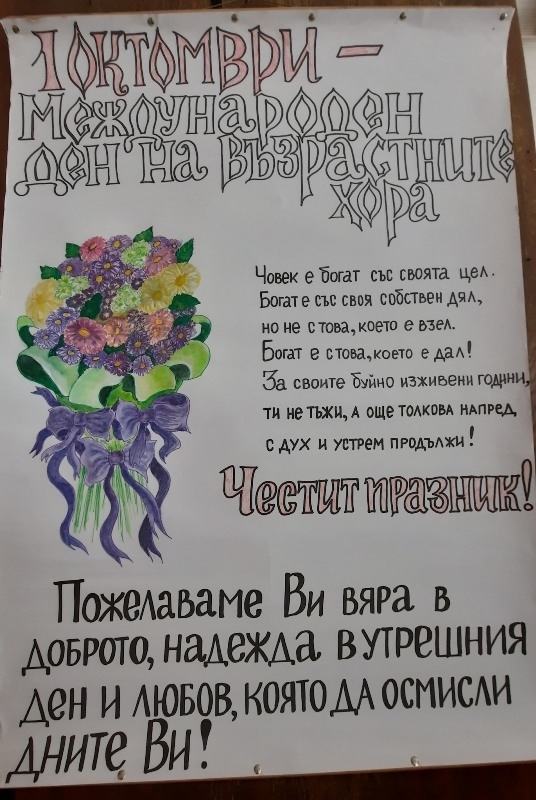 1 ОКТОМВРИ –
МЕЖДУНАРОДЕН
ДЕН НА ВЪЗРАСТНИТЕ
ХОРА
Човек е богат със своята цел.
Богат е със своя собствен дял,
но не с това, което е взел.
Богат е с това, което е дал!
За своите буйно изживени години,
ти не тъжи, а още толкова напред,
с дух и устрем продължи!
Честит празник!
Пожелаваме Ви вяра в
доброто, надежда в утрешния
ден и любов, която да осмисли
дните Ви!